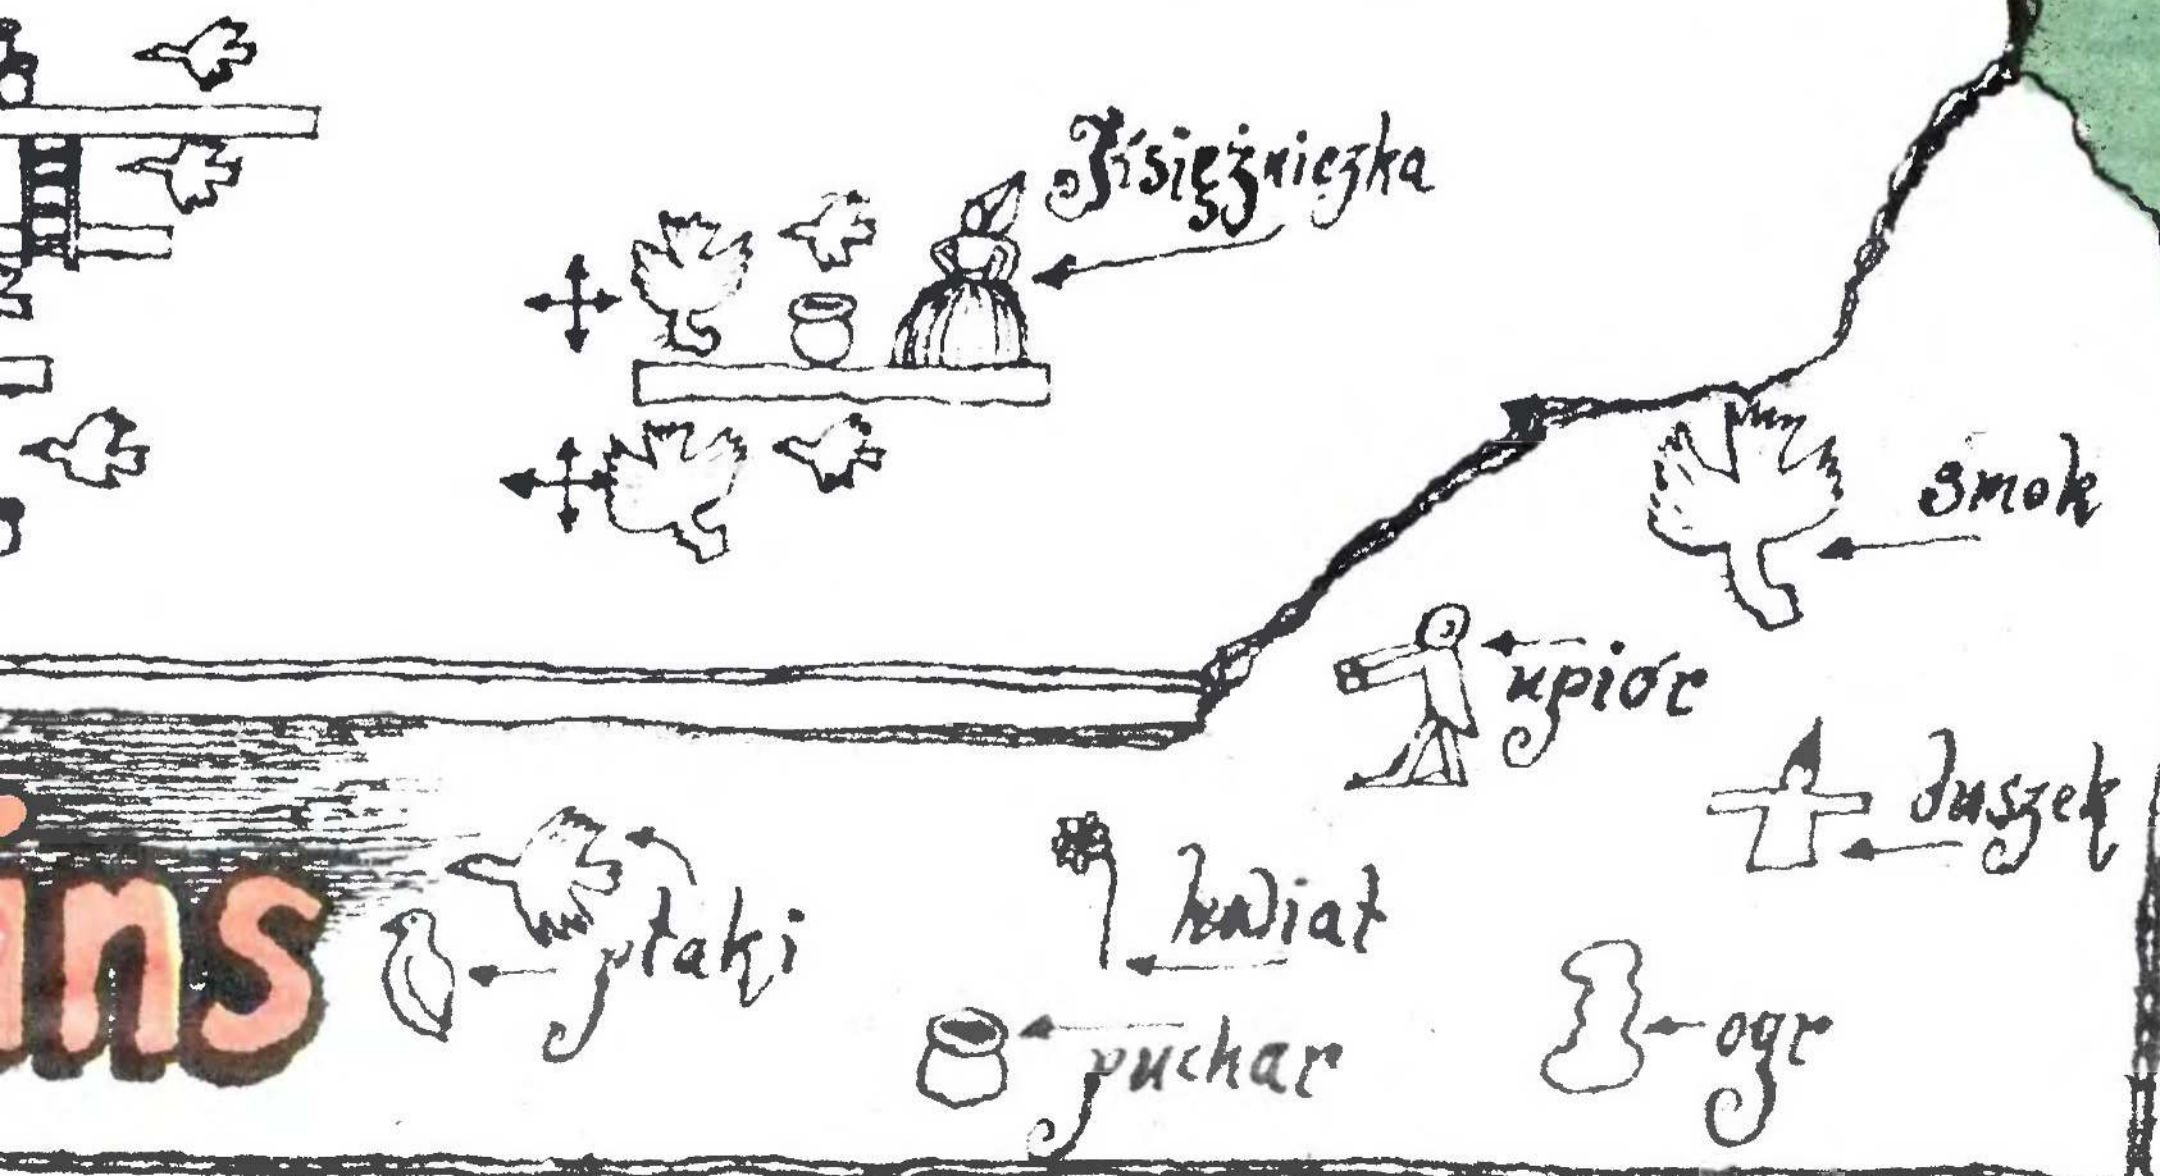 Księżniczka
smok
upiór
duszek
ins
ptaki
kwiat
puchar
ogr